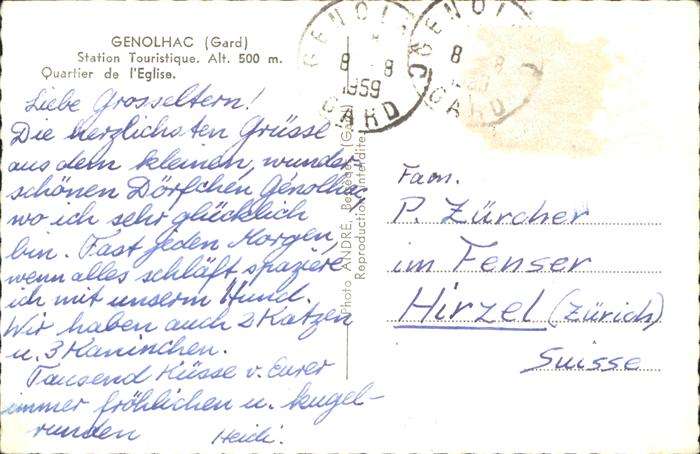 GENOLHAC (Gard)
Station Touristique. Alt. 500 m.
Quartier de l'Eglise.
Liebe Grosseltern!
Die herzlichsten Grüsse
aus dem kleinen, wunder
schönen Dörfchen Génolhac,
wo ich sehr glücklich
bin. Fast jeden Morgen,
wenn alles schläft, spaziere
ich mit unserm Hund.
Wir haben auch 2 Katzen
u. 3 Kaninchen.
Tausend Küsse v. Eurer
immer fröhlichen u. kugel-
runden Heidi.
Photo ANDRÉ, (Gard)
Reproduction interdite
GENOL
8 - 8
1959
GARD
GENOL
8 8
GARD
Fam.
P. Zürcher
im Fenser
Hirzel (Zürich)
Suisse